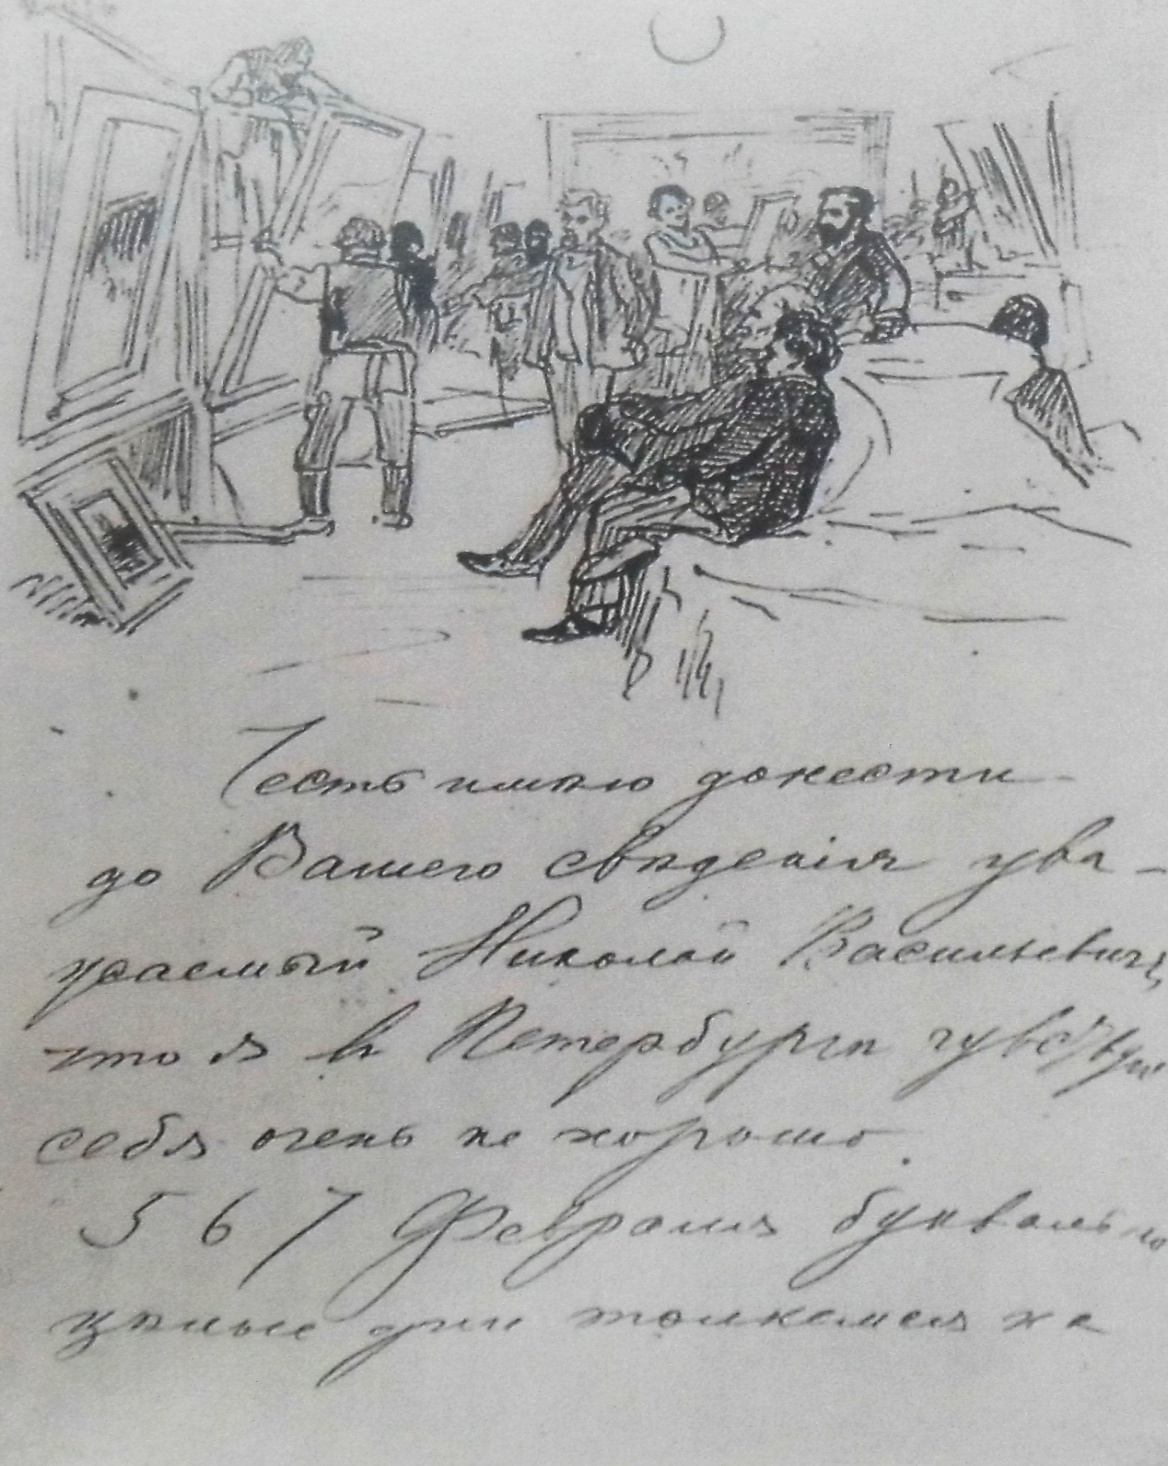 Честь имѣю донести
до Вашего свѣденія ува-
жаемый Николай Васильевичъ,
что я в Петербургѣ чувствую
себя очень не хорошо.
5 6 7 Февраля буквально
цѣлые дни толкемся на